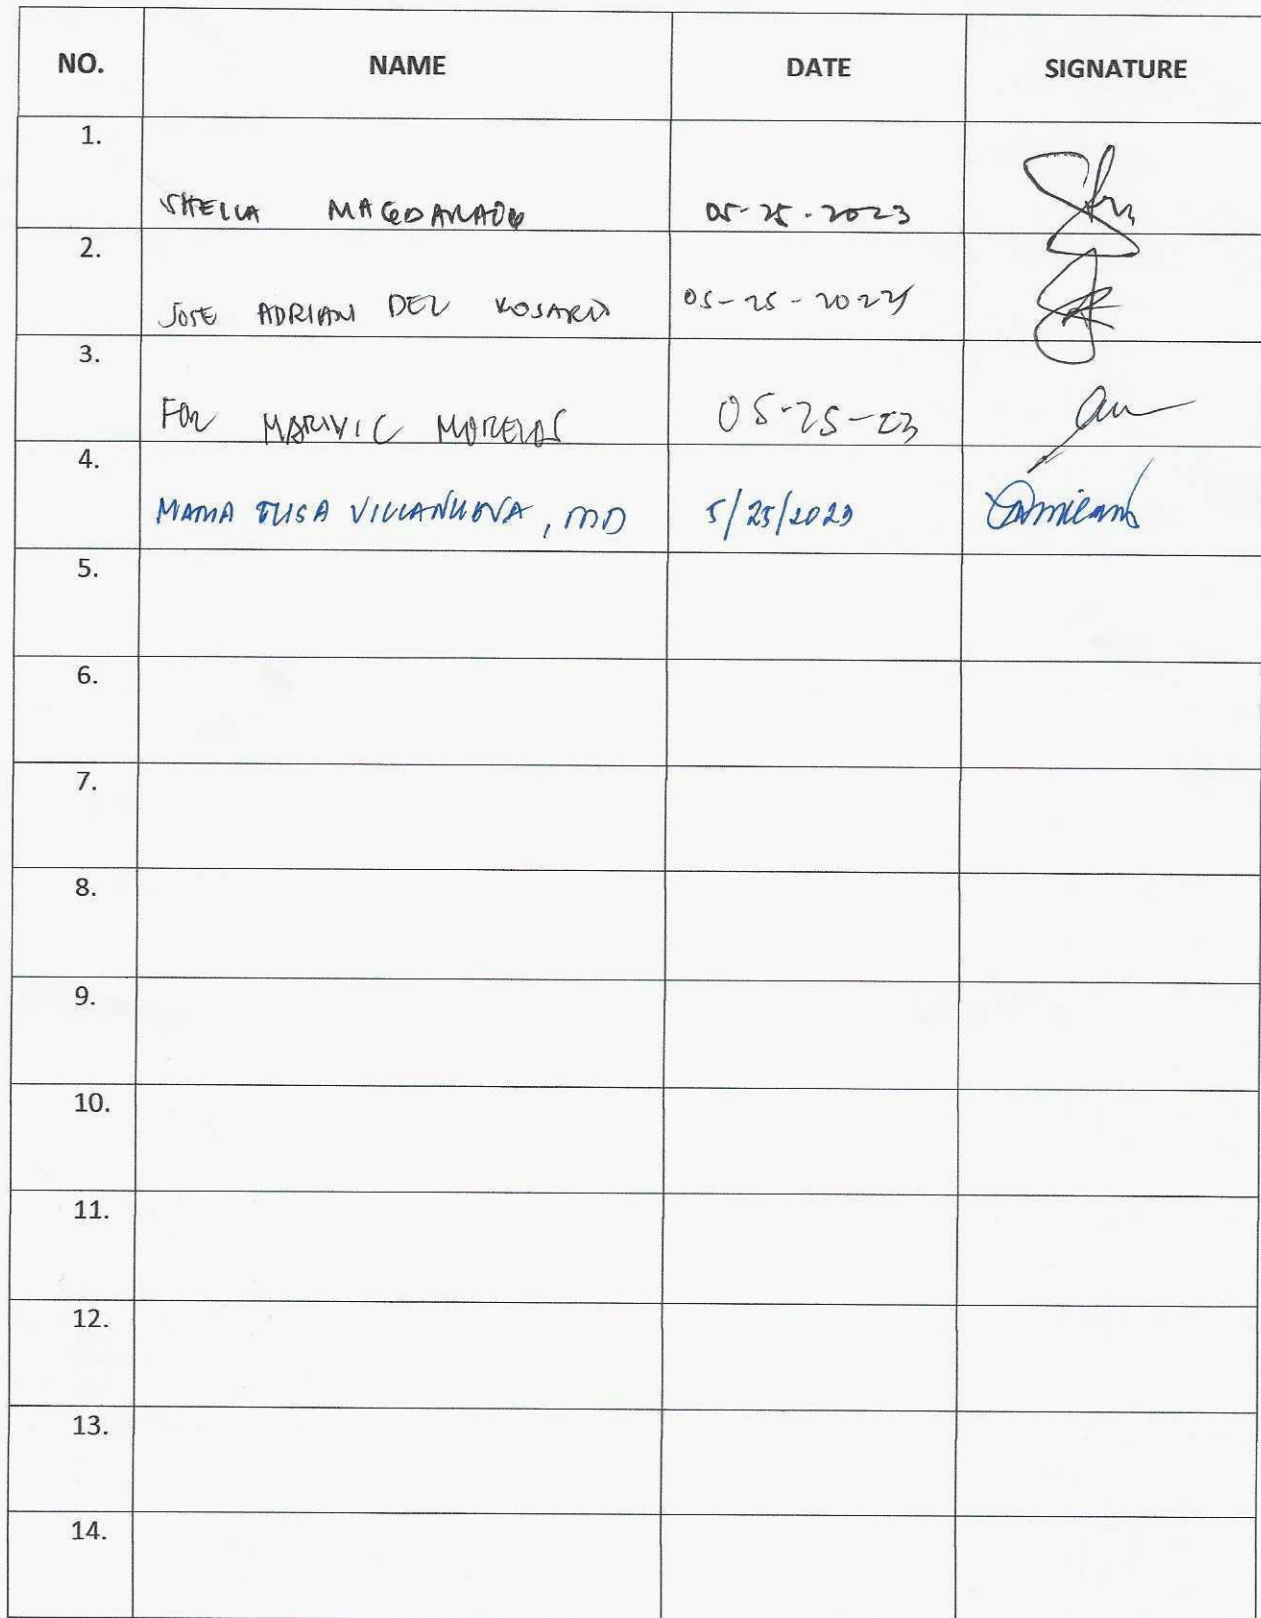 NO. NAME DATE SIGNATURE
1.
SHEILA 05-25-2023
2.
JOSE ADRIAN DEL ROSARIO 05-25-202
3.
FOR MARIVIC 05-25-23
4.
MARIA ELISA VILLANUEVA, MD 5/25/2023
5.
6.
7.
8.
9.
10.
11.
12.
13.
14.